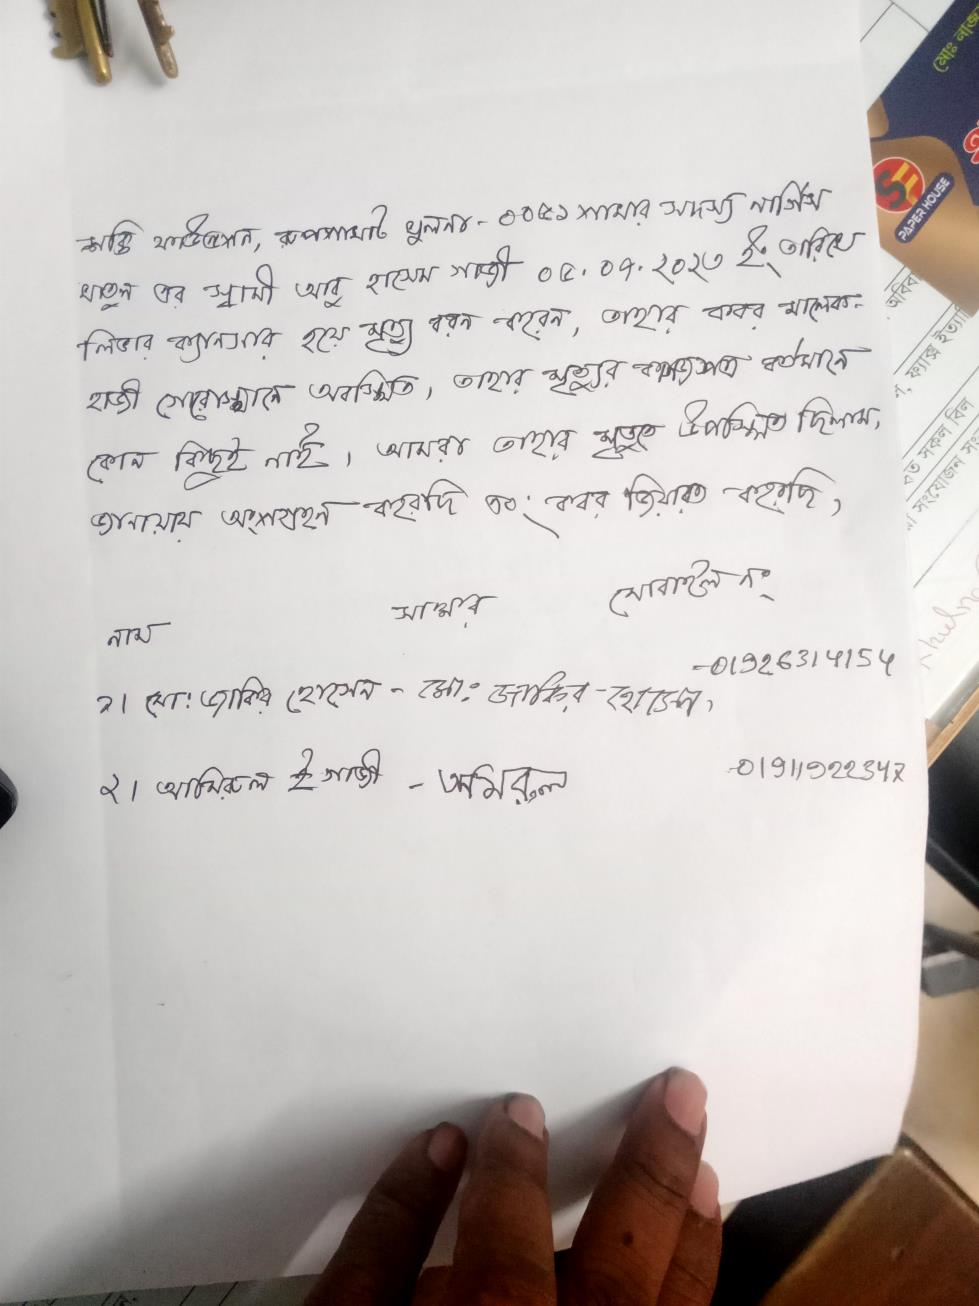 শক্তি ফাউন্ডেশন, রূপসাঘাট খুলনা - ০০৫১ শাখার সদস্য নার্গিস
খাতুন এর স্বামী আবু হাসেম গাজী ০৫.০৭.২০২৩ ইং তারিখে
লিভার ক্যানসার হয়ে মৃত্যু বরন করেন, তাহার কবর মালেক-
হাজী গোরোস্থানে অবস্থিত, তাহার মৃত্যুর কাগজপত্র বর্তমানে
কোন কিছুই নাই। আমরা তাহার মৃত্যুতে উপস্থিত ছিলাম,
জানাযায় অংশগ্রহন করেছি এবং কবর জিয়ারত করেছি,
নাম সাক্ষর মোবাইল নং
১। মো: জাকির হোসেন - মো: জাকির হোসেন, -01926314154
২। আমিরুল ই গাজী - আমিরুল -01911922347
মোঃ
SF
PAPER HOUSE
ফ্যাক্স ইত্যা
সকল বিল
সংযোজন